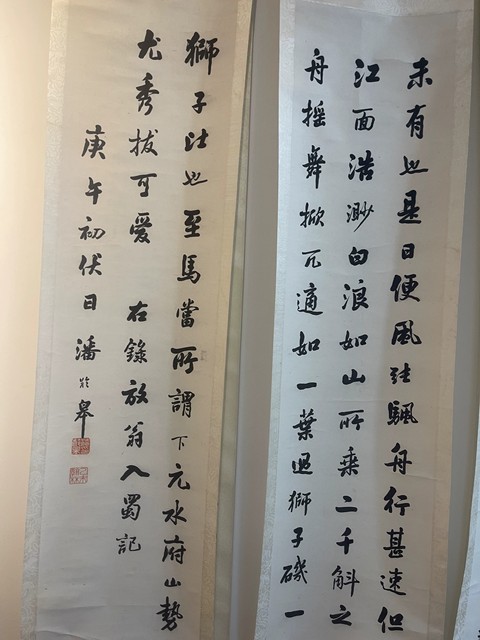 未有也是日便風張颿舟行甚速但
江面浩渺白浪如山所乘二千斛之
舟搖舞掀兀適如一葉過獅子磯一
獅子比也至馬當所謂下元水府山勢
尤秀拔可愛 右錄放翁入蜀記
庚午初伏日潘齡皋